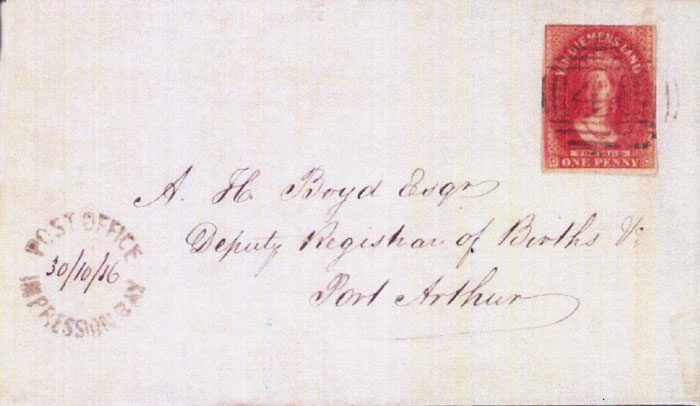 VAN DIEMENS LAND
ONE PENNY
A. H. Boyd Esqr
Deputy Registrar of Births &c
Port Arthur
POST OFFICE
30/10/56
IMPRESSION BAY